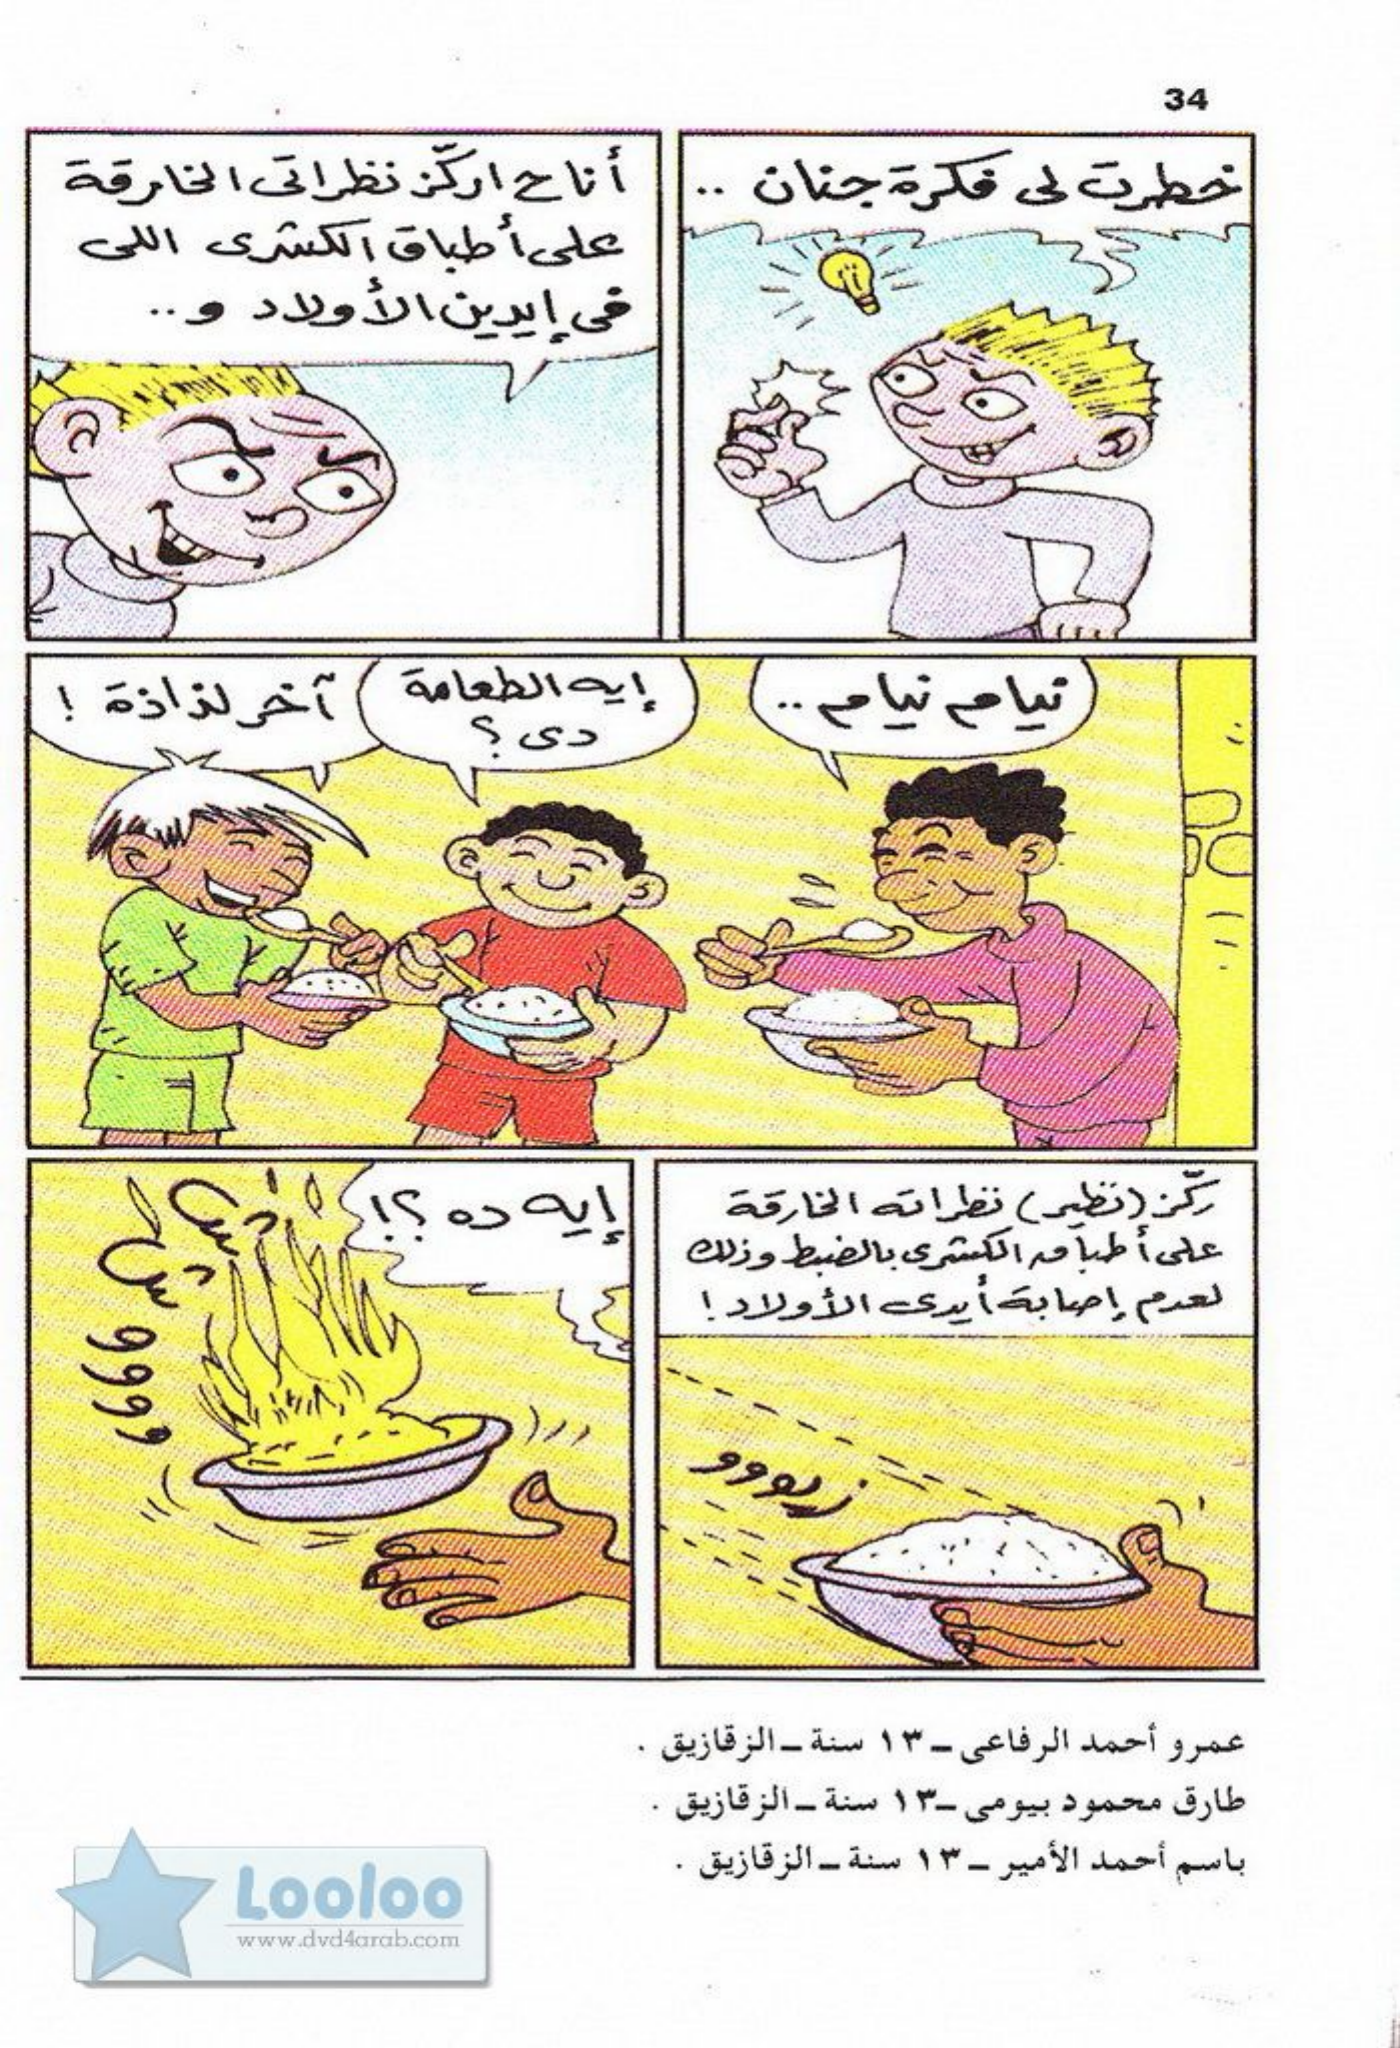 34
خطرت لى فكرة جنان ..
أنا ح اركّز نظراتى الخارقة
على أطباق الكشرى اللى
فى إيدين الأولاد و..
نيام نيام ..
إيه الطعامة
دى ؟
آخر لذاذة !
ركّز (نظير) نظراته الخارقة
على أطباق الكشرى بالضبط وذلك
لعدم إصابة أيدى الأولاد !
زيوووو
إيه ده ؟!
عمرو أحمد الرفاعى ــ ١٣ سنة ــ الزقازيق .
طارق محمود بيومى ــ ١٣ سنة ــ الزقازيق .
باسم أحمد الأمير ــ ١٣ سنة ــ الزقازيق .
Looloo
www.dvd4arab.com